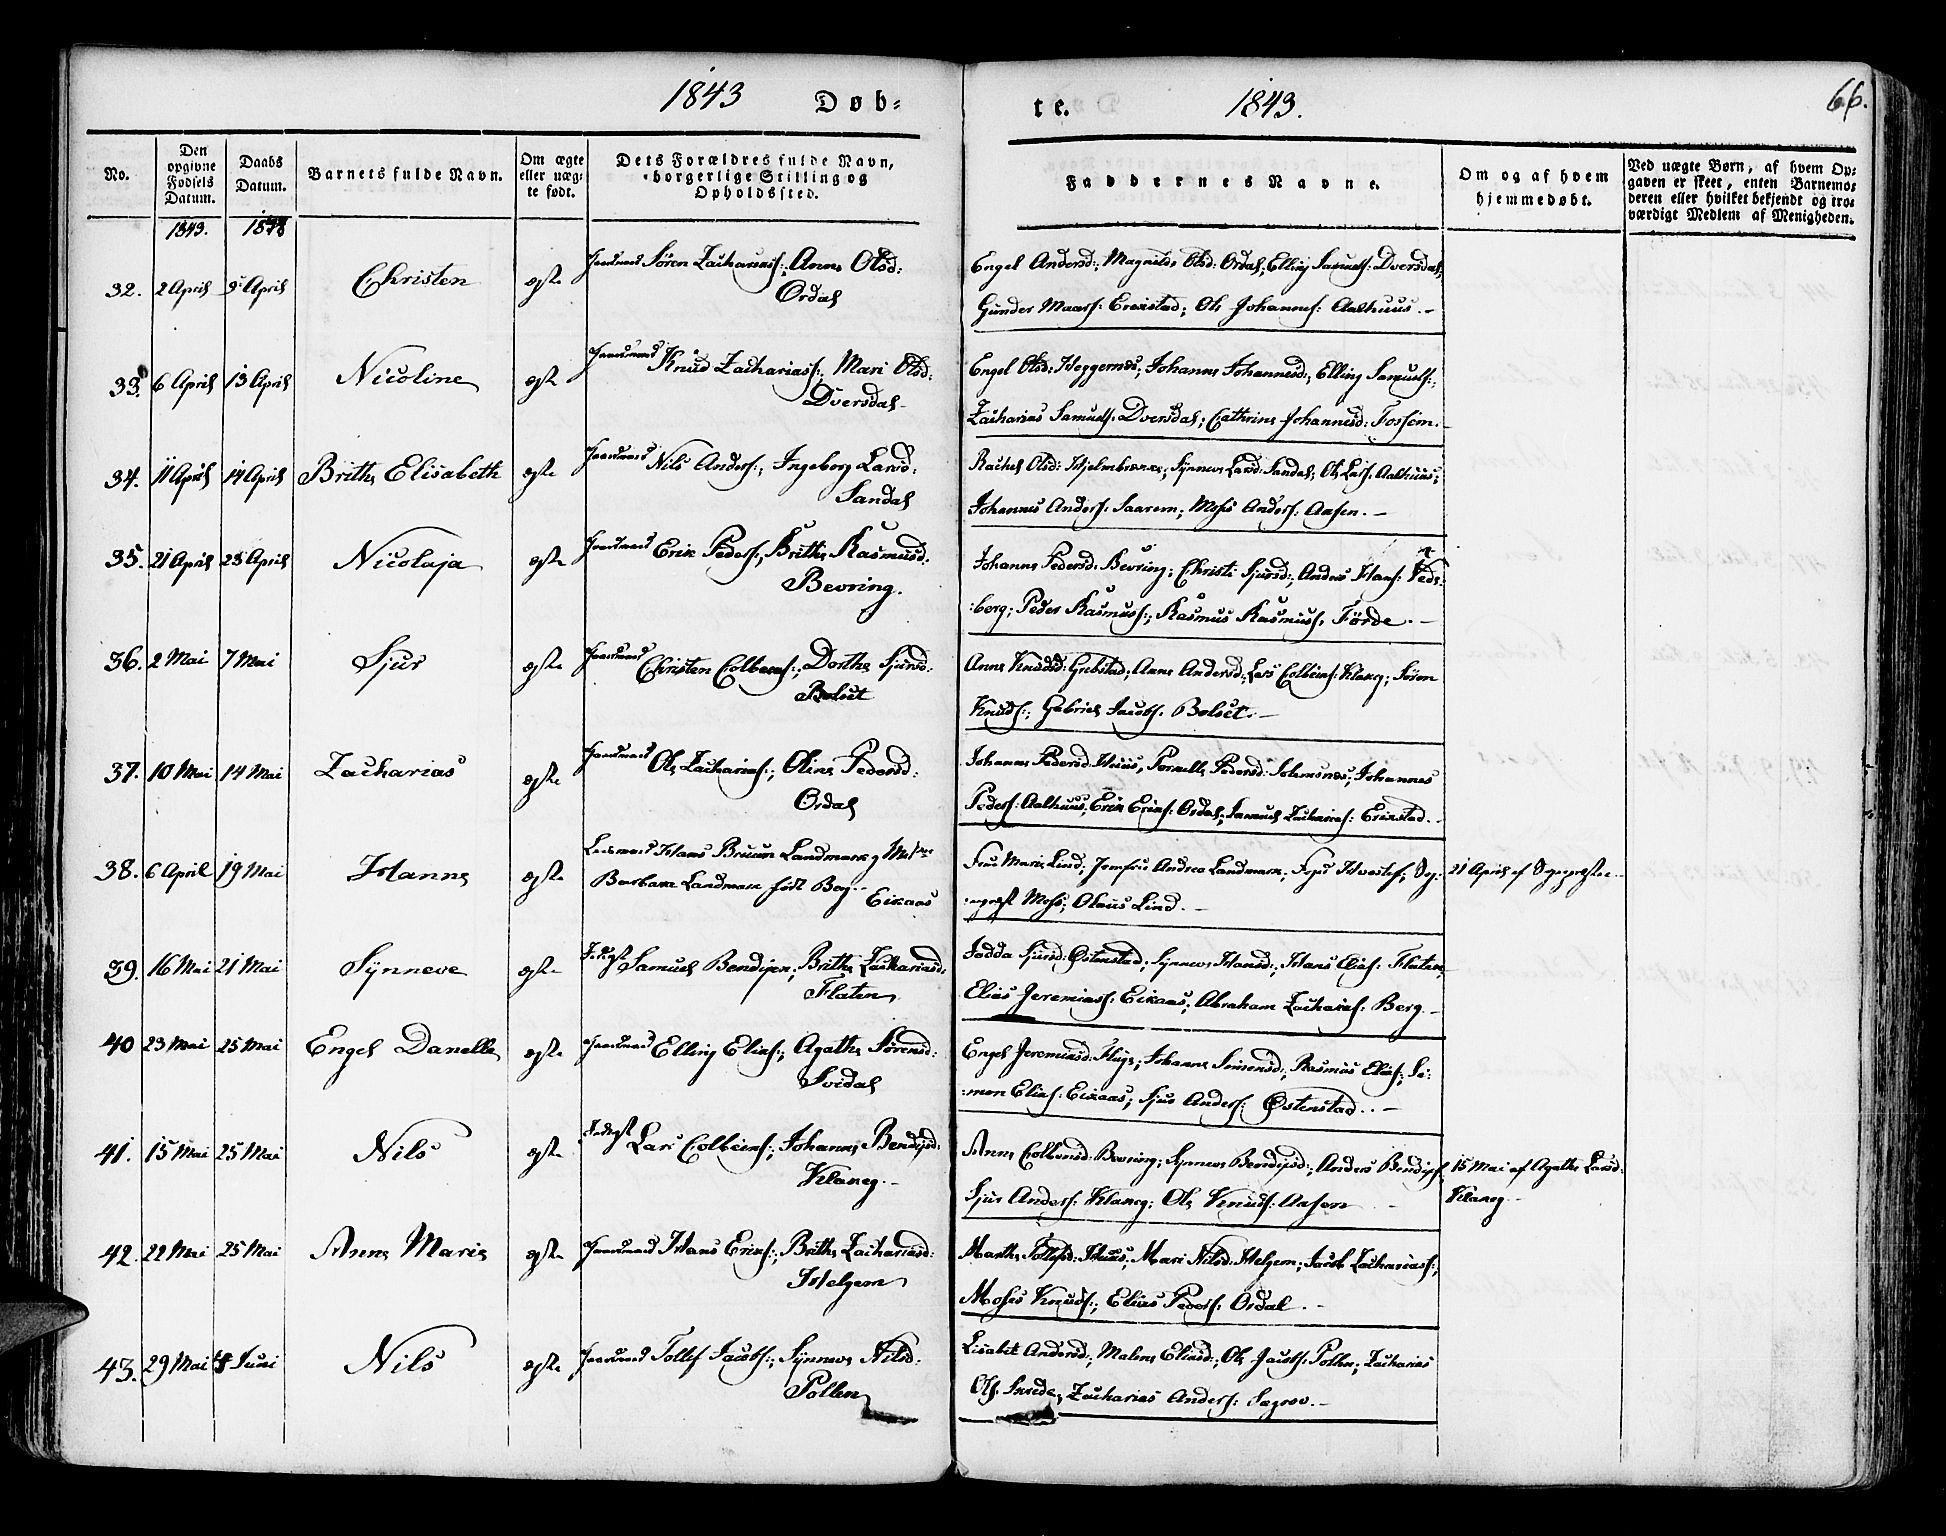 1843 Døb=
te. 1843. 66.
No.
Den opgivne Fødsels Datum.
Daabs Datum.
Barnets fulde Navn.
Om ægte eller uæg= te født.
Dets Forældres fulde Navn, borgerlige Stilling og Opholdssted.
Faddernes Navne.
Om og af hvem hjemmedøbt.
Ved uægte Børn, af hvem Op= gaven er skeet, enten Barnemo= deren eller hvilket bekjendt og tro= værdigt Medlem af Menigheden.
1843. 1843
32. 2 April 9 April Christen ægte Gaardmand Søren Zachariass:, Anne Olsd:
Ordal
Engel Andersd:, Magnilde Olsd: Ordal; Elling Samuels: Dversdal;
Gunder Maars: Erikstad; Ole Johannes: Aalhuus.-
33. 6 April 13 April Nicoline ægte Gaardmand Knud Zachariass:, Mari Olsd:
Dversdal-
Engel Olsd: Heggernæs; Johanne Johannesd:, Elling Samuels:,
Zacharias Samuels: Dversdal; Cathrine Johannesd: Fossem.-
34. 11 April 14 April Brithe Elisabeth ægte Gaardmand Nils Anders:, Ingeborg Larsd:
Sandal
Rachel Olsd: Hjelmbrække; Synneve Larsd: Sandal; Ole Lars: Aalhuus;
Johannes Anders: Aarem; Moss Anders: Aasen.-
35. 21 April 23 April Nicolaja ægte Gaardmand Erik Peders:, Brithe Rasmusd:
Bevring.
Johanne Pedersd: Bevring; Christi Sjursd:, Anders Hans: Veds=
=berg; Peder Rasmuss:, Rasmus Rasmuss: Förde.-
36. 2 Mai 7 Mai Sjur ægte Gaardmand Christen Colbeens:, Dorthe Sjursd:
Bolset
Anne Knudsd: Grebstad; Anne Andersd:, Lars Colbeins: Klaaeg; Søren
Knuds:, Gabriel Jacobs: Bolset.-
37. 10 Mai 14 Mai Zacharias ægte Gaardmand Ole Zacharias:, Oline Pedersd:
Ordal
Johanne Pedersd: Huus, Pernille Pedersd: Solemsnæs; Johannes
Peders: Aalhuus; Erik Eriks: Ordal; Samuel Zacharias: Erikstad.-
38. 6 April 19 Mai Hanne ægte Lensmand Hans Bruun Landmark og
Barbara Landmark født Bøy.-
Eikaas
Frue Marie Lind; Jomfru Andrea Landmark; Sog=
=nepræst Moss; Olaus Lind.-
21 April af Sognepræsten.-
39. 16 Mai 21 Mai Synneve ægte Samuel Bendixen; Brithe Zachariasd:
Flaten
Jadda Sjursd: Østenstad; Synneve Hansd:, Hans Elias: Flaten,
Elias Jeremiass: Eikaas; Abraham Zacharias: Berg.-
40 23 Mai 25 Mai Engel Danelle ægte Gaardmand Elling Elias:, Agathe Sørensd:
Svidal
Engel Jeremiasd: Fluge; Johanne Simensd:, Rasmus Elias:, Si=
=mon Elias: Eikaas; Sjur Anders: Østenstad.-
41. 15 Mai 25 Mai Nils ægte Lars Colbeens:, Johanne Bendixd:
Klaaeg.-
Anne Colbensd: Bevring; Synneve Bendixd:, Anders Bendix:,
Sjur Anders: Klaaeg; Ole Knuds: Aasen
15 Mai af Agathe Larsd:
Klaaeg.-
42. 22 Mai 25 Mai Anne Marie ægte Gaardmand Hans Eriks:, Brithe Zachariasd:
Helgem
Marthe Tollefsd: Huus; Mari Nilsd: Helgem; Jacob Zachariass:,
Moses Knuds:, Elias Peders: Ordal.-
43. 29 Mai 8 Juni Nils ægte Gaardmand Tollef Jacobs:, Synneve Nilsd:
Pollen
Lisabet Andersd:, Malene Eliasd:, Ole Jacobs: Pollen; Zacharias
Ols: ; Zacharias Anders: Sægrov.-